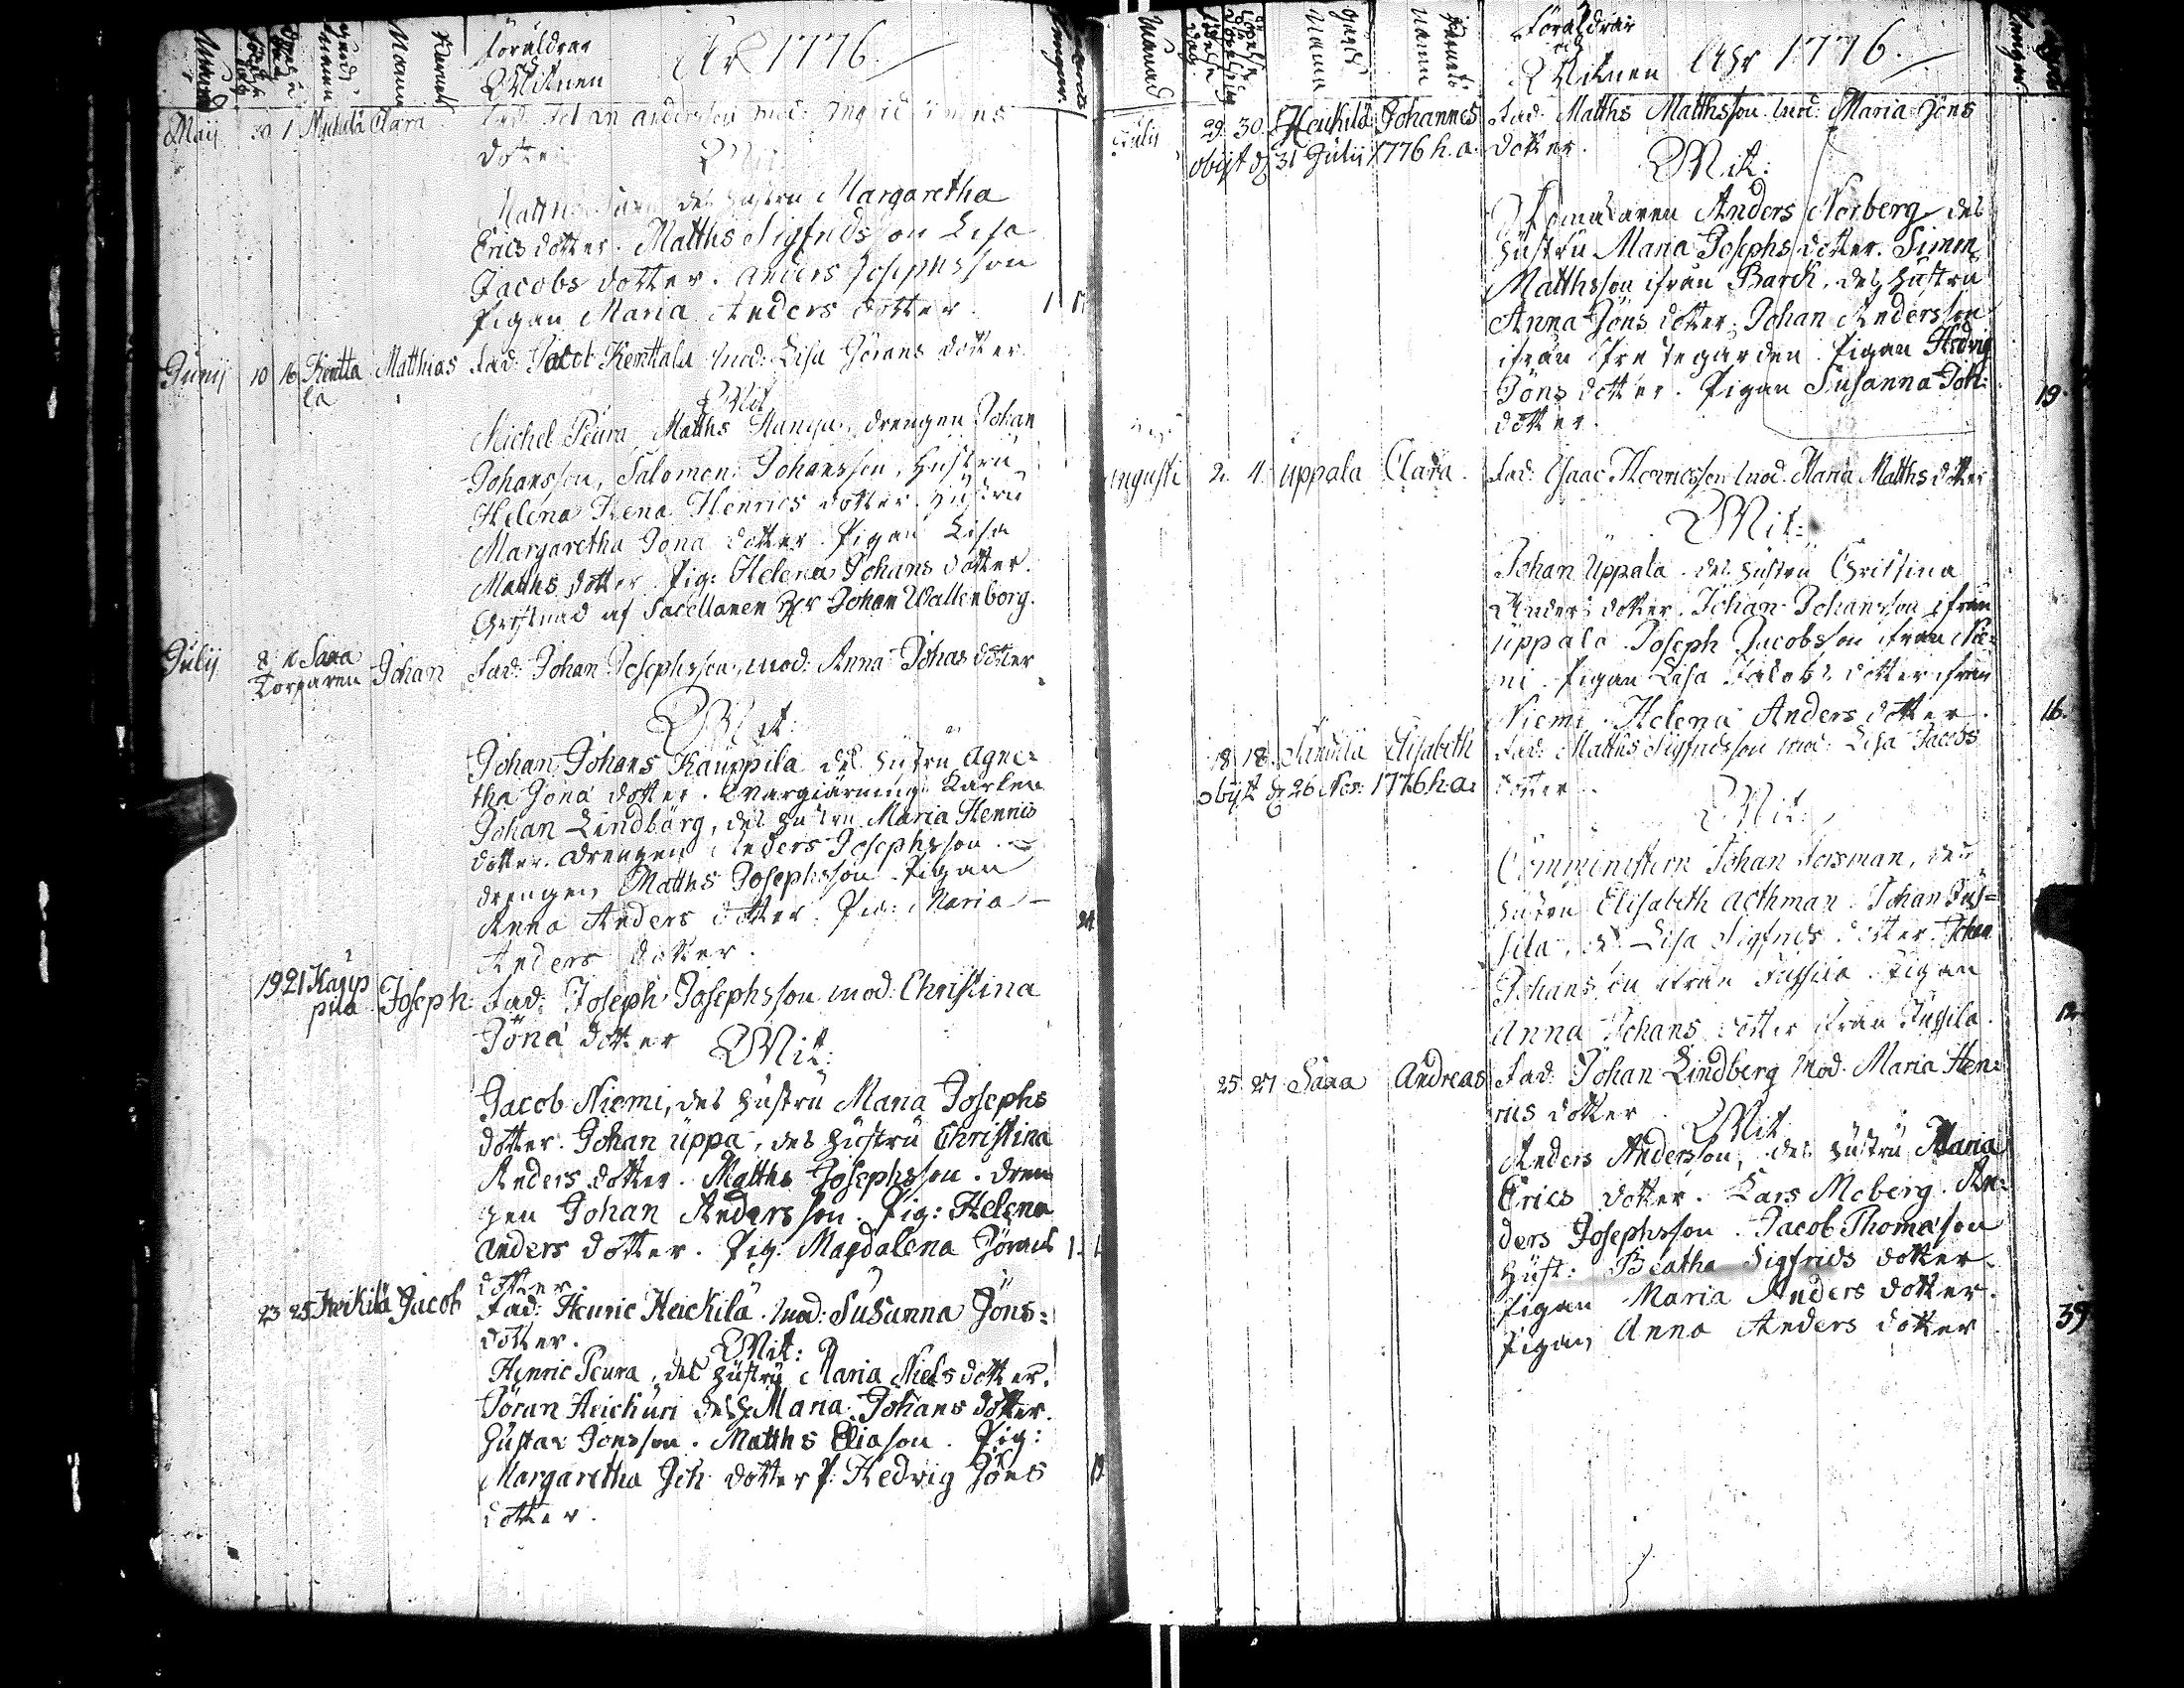 Månad
Gårds
Namn
Barnets
Föräldrar
Witnen
År 1776.
Maij 30 1 Clara Fad: Johan Andersson mod: Ingrid Simons
dotter Wit:
des hustru Margaretha
Erics dotter. Matths Sigfridsson Lisa
Jacobs dotter. Anders Josephsson
Pigan Maria Anders dotter.
Junij 10 16 Kentta Matthias Fad: Jacob Kenttala mod: Lisa Görans dotter
la
Wit
Michel Peura, Matths drengen Johan
Johansson, Salomon Johansson, Hustru
Helena Lena Henrics dotter. Hustru
Margaretha Jona dotter. Pigan Lisa
Matths dotter. Pig: Helena Johans dotter.
Christnad af Sacellanen Hr Johan Wallenborg.
Julij 8 10 Sara Johan Fad: Johan Josephsson, mod: Anna Johas dotter
Torparen
Wit:
Johan Johans Kauppila des hustru Agne=
tha Jona dotter. Karlen
Johan Lindbärg, des hustru Maria Henrics
dotter. drengen Anders Josephsson.
drengen Matths Josephsson Pigan
Anna Anders dotter. Pig: Maria
Anders dotter.
19 21 Kaup Joseph Fad: Joseph Josephsson mod: Christina
pila
Jöna dotter Wit:
Jacob Niemi, des hustru Maria Josephs
dotter. Johan Uppa, des hustru Christina
Anders dotter. Matths Josephsson. dren
gen Johan Andersson. Pig: Helena
Anders dotter. Pig: Magdalena Görans
dotter.
23 25 Heikilä Jacob Fad: Henric Heickilä. mod: Susanna Jöns=
dotter. Wit:
Henric Peura, des hustru Maria Niels dotter.
Göran Heickuri des h. Maria Johans dotter.
Gustav Jonsson. Matths Eliason. Pig:
Margaretha Joh: dotter P: Hedvig Jöns
dotter.
Månad
Gårds
Namn
Barnets
Namn
Föräldrar
och
Witnen
Åhr 1776.
Julij 29. 30. Heickilä Johannes Fad: Matths Matthsson mod: Maria Jöns
obijt d. 31 Julij 1776 h. a. dotter.
Wit:
Anders Norberg des
hustru Maria Josephs dotter. Simon
Matthsson ifrån Barck, des hustru
Anna Jöns dotter, Johan Andersson
ifrån Pigan Hedvig
Jöns dotter. Pigan Susanna Joh: 19.
dotter.
Augusti 2. 4. Uppala Clara. Fad: Isaac Henricsson mod. Maria Matths dotter
Wit:
Johan Uppala des hustru Christina
Anders dotter. Johan Johansson ifrån
Uppala. Joseph Jacobsson ifrån Nie=
mi. Pigan Lisa Jakobs dotter ifrån
Niemi. Helena Anders dotter. 16.
18 18 Elisabeth Fad: Matths Sigfridsson mod: Lisa Jacobs
obijt d. 26 Nov: 1776 h. a: dotter.
Wit:
Comministern Johan Forsman, des
hustru Elisabeth Aethman. Johan Jus=
sila, Lisa Sigfrids dotter. Johan
Johansson ifrån Jussila. Pigan
Anna Johans dotter ifrån Jussila. 12
25 27 Sara Andreas Fad: Johan Lindberg mod. Maria Hen=
rics dotter Wit
Anders Andersson, des hustru Maria
Erics dotter. Lars Moberg. An=
ders Josephsson. Jacob Thomason
Hust: Beatha Sigfrids dotter.
Pigan Maria Anders dotter.
Pigan Anna Anders dotter 39